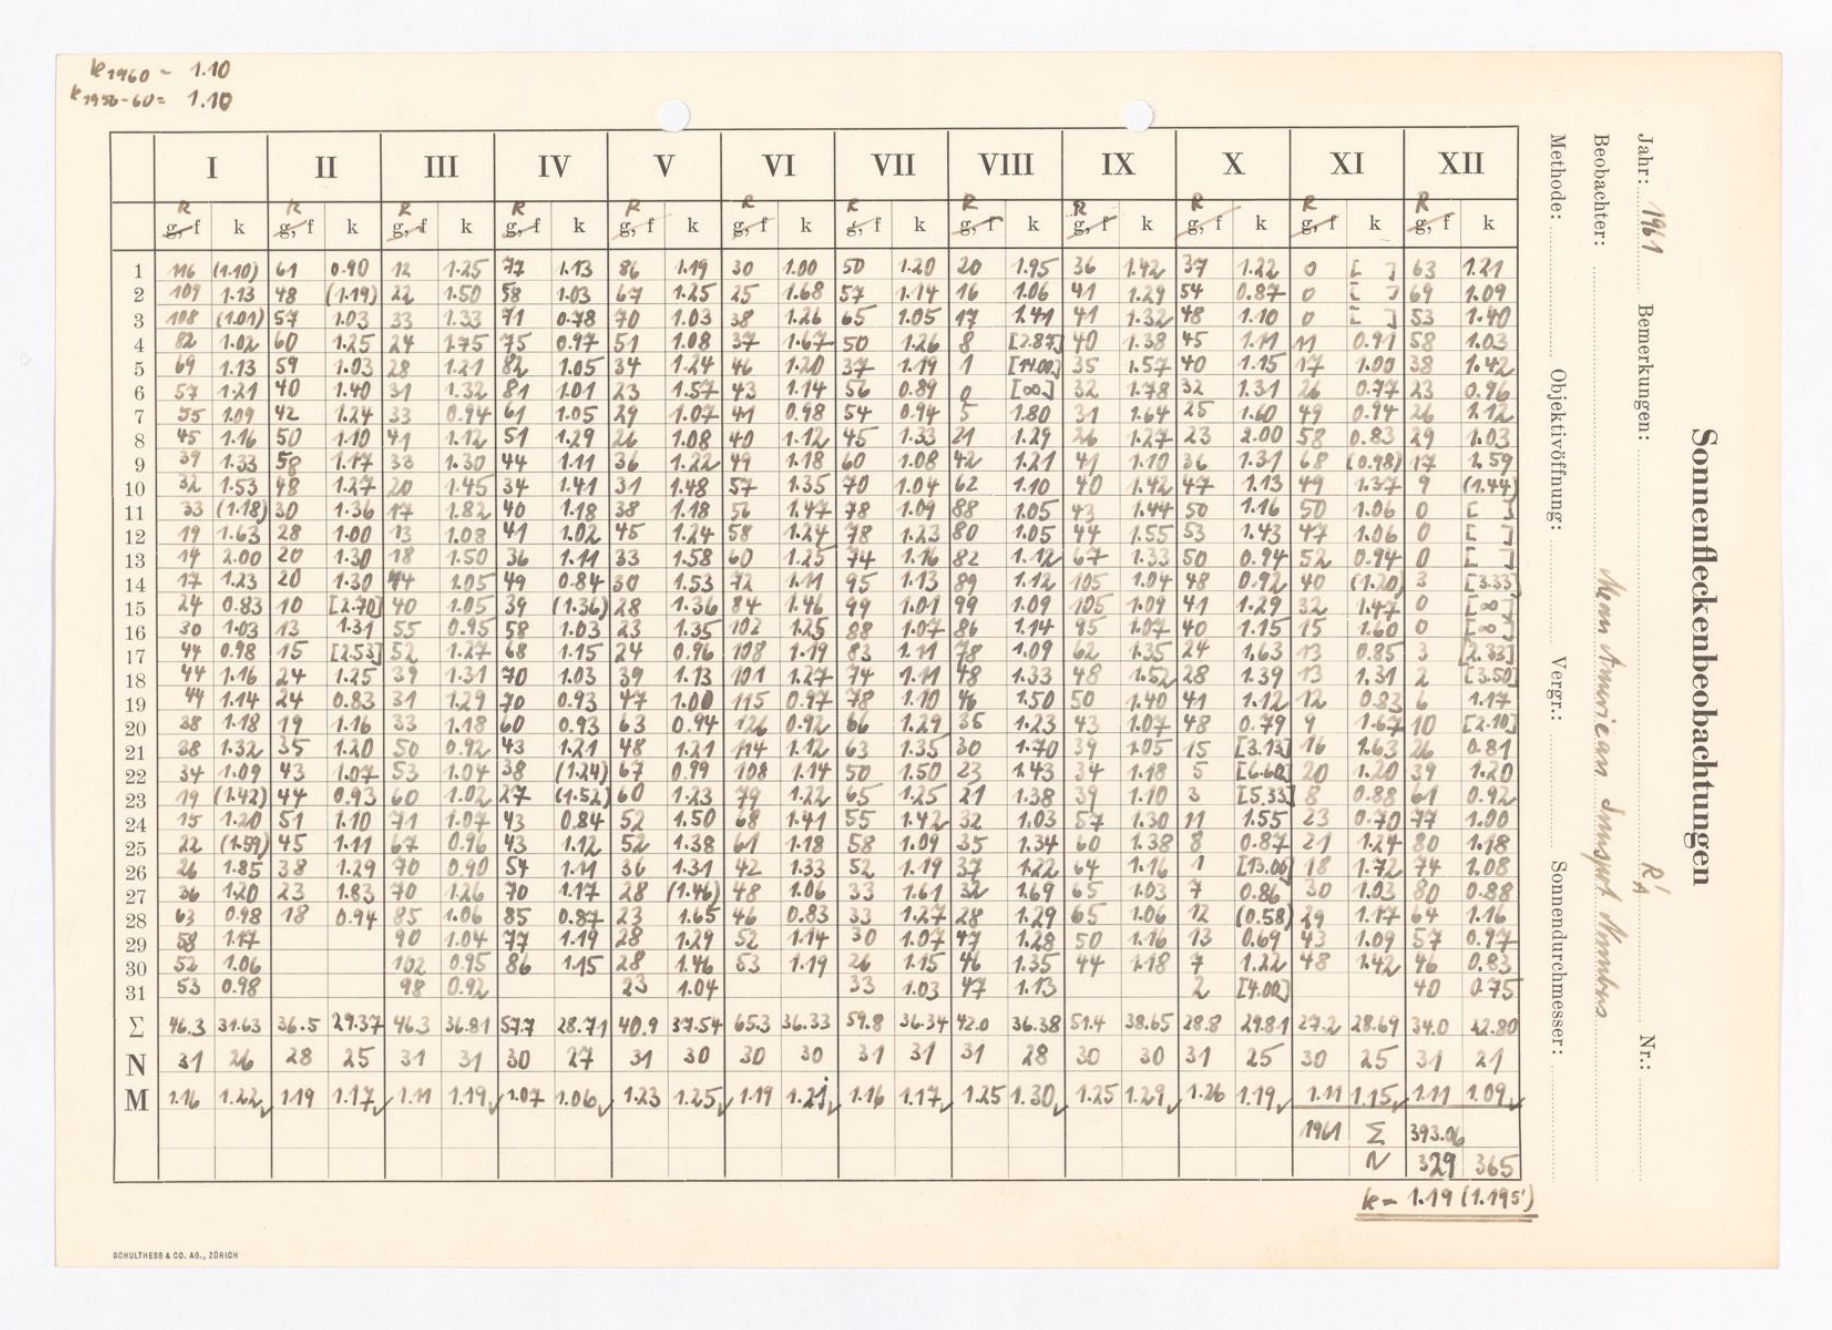 k1960 = 1.10
k1950-60 = 1.10
Sonnenfleckenbeobachtungen
Jahr: 1961 Bemerkungen: R'A Nr.:
Beobachter: Mean American Sunspot Numbers
Methode: Objektivöffnung: Vergr.: Sonnendurchmesser:
I II III IV V VI VII VIII IX X XI XII
R R R R R R R R R R R R
g, f k g, f k g, f k g, f k g, f k g, f k g, f k g, f k g, f k g, f k g, f k g, f k
1 116 (1.10) 61 0.90 12 1.25 77 1.13 86 1.19 30 1.00 50 1.20 20 1.95 36 1.42 37 1.22 0 [ ] 63 1.21
2 109 1.13 48 (1.19) 22 1.50 58 1.03 67 1.25 25 1.68 57 1.14 16 1.06 41 1.29 54 0.87 0 [ ] 69 1.09
3 108 (1.01) 57 1.03 33 1.33 71 0.78 70 1.03 38 1.26 65 1.05 17 1.41 41 1.32 48 1.10 0 [ ] 53 1.40
4 82 1.02 60 1.25 24 1.75 75 0.97 51 1.08 37 1.67 50 1.26 8 [2.87] 40 1.38 45 1.11 11 0.91 58 1.03
5 69 1.13 59 1.03 28 1.21 82 1.05 34 1.24 46 1.20 37 1.19 1 [14.00] 35 1.57 40 1.15 17 1.00 38 1.42
6 57 1.21 40 1.40 31 1.32 81 1.01 23 1.57 43 1.14 56 0.89 0 [∞] 32 1.78 32 1.31 26 0.77 23 0.96
7 55 1.09 42 1.24 33 0.94 61 1.05 29 1.07 41 0.98 54 0.94 5 1.80 31 1.64 25 1.60 49 0.94 26 1.12
8 45 1.16 50 1.10 41 1.12 51 1.29 26 1.08 40 1.12 45 1.33 21 1.29 26 1.27 23 2.00 58 0.83 29 1.03
9 39 1.33 58 1.17 33 1.30 44 1.11 36 1.22 49 1.18 60 1.08 42 1.21 41 1.10 36 1.31 68 (0.98) 17 1.59
10 32 1.53 48 1.27 20 1.45 34 1.41 31 1.48 57 1.35 70 1.04 62 1.10 40 1.42 47 1.13 49 1.37 9 (1.44)
11 33 (1.18) 30 1.36 17 1.82 40 1.18 38 1.18 56 1.47 78 1.09 88 1.05 43 1.44 50 1.16 50 1.06 0 [ ]
12 19 1.63 28 1.00 13 1.08 41 1.02 45 1.24 58 1.24 78 1.23 80 1.05 44 1.55 53 1.43 47 1.06 0 [ ]
13 14 2.00 20 1.30 18 1.50 36 1.11 33 1.58 60 1.25 74 1.16 82 1.12 67 1.33 50 0.94 52 0.94 0 [ ]
14 17 1.23 20 1.30 44 1.05 49 0.84 30 1.53 72 1.11 95 1.13 89 1.12 105 1.04 48 0.92 40 (1.20) 3 [3.33]
15 24 0.83 10 [2.70] 40 1.05 39 (1.36) 28 1.36 84 1.46 99 1.01 99 1.09 105 1.09 41 1.29 32 1.47 0 [∞]
16 30 1.03 13 1.31 55 0.95 58 1.03 23 1.35 102 1.25 88 1.07 86 1.14 95 1.07 40 1.15 15 1.60 0 [∞]
17 44 0.98 15 [2.53] 52 1.27 68 1.15 24 0.96 108 1.19 83 1.11 78 1.09 62 1.35 24 1.63 13 0.85 3 [2.33]
18 44 1.16 24 1.25 39 1.31 70 1.03 39 1.13 101 1.27 74 1.11 48 1.33 48 1.52 28 1.39 13 1.31 2 [3.50]
19 44 1.14 24 0.83 31 1.29 70 0.93 47 1.00 115 0.97 78 1.10 46 1.50 50 1.40 41 1.12 12 0.83 6 1.17
20 38 1.18 19 1.16 33 1.18 60 0.93 63 0.94 126 0.92 66 1.29 35 1.23 43 1.07 48 0.79 9 1.67 10 [2.10]
21 38 1.32 35 1.20 50 0.92 43 1.21 48 1.21 114 1.12 63 1.35 30 1.70 39 1.05 15 [3.13] 16 1.63 26 0.81
22 34 1.09 43 1.07 53 1.04 38 (1.24) 67 0.99 108 1.14 50 1.50 23 1.43 34 1.18 5 [6.60] 20 1.20 39 1.20
23 19 (1.42) 44 0.93 60 1.02 27 (1.52) 60 1.23 79 1.22 65 1.25 21 1.38 39 1.10 3 [5.33] 8 0.88 61 0.92
24 15 1.20 51 1.10 71 1.07 43 0.84 52 1.50 68 1.41 55 1.42 32 1.03 57 1.30 11 1.55 23 0.70 77 1.00
25 22 (1.59) 45 1.11 67 0.96 43 1.12 52 1.38 61 1.18 58 1.09 35 1.34 60 1.38 8 0.87 21 1.24 80 1.18
26 26 1.85 38 1.29 70 0.90 54 1.11 36 1.31 42 1.33 52 1.19 37 1.22 64 1.16 1 [13.00] 18 1.72 74 1.08
27 36 1.20 23 1.83 70 1.26 70 1.17 28 (1.46) 48 1.06 33 1.61 32 1.69 65 1.03 7 0.86 30 1.03 80 0.88
28 63 0.98 18 0.94 85 1.06 85 0.87 23 1.65 46 0.83 33 1.27 28 1.29 65 1.06 12 (0.58) 29 1.17 64 1.16
29 58 1.17 90 1.04 77 1.19 28 1.29 52 1.14 30 1.07 47 1.28 50 1.16 13 0.69 43 1.09 57 0.97
30 52 1.06 102 0.95 86 1.15 28 1.46 53 1.19 26 1.15 46 1.35 44 1.18 7 1.22 48 1.42 46 0.83
31 53 0.98 98 0.92 23 1.04 33 1.03 47 1.13 2 [4.00] 40 0.75
Σ 46.3 31.63 36.5 29.37 46.3 36.81 57.7 28.71 40.9 37.54 65.3 36.33 59.8 36.34 42.0 36.38 51.4 38.65 28.8 29.81 27.2 28.69 34.0 22.80
N 31 26 28 25 31 31 30 27 31 30 30 30 31 31 31 28 30 30 31 25 30 25 31 21
M 1.16 1.22 1.19 1.17 1.11 1.19 1.07 1.06 1.23 1.25 1.19 1.21 1.16 1.17 1.25 1.30 1.25 1.29 1.26 1.19 1.11 1.15 1.11 1.09
1961 Σ 393.06
N 329 365
k = 1.19 (1.195')
SCHULTHESS & CO. AG., ZÜRICH